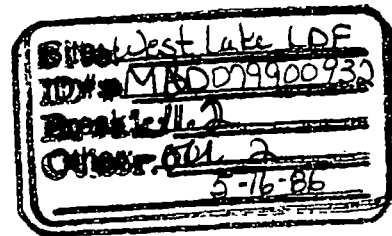 Site: West Lake LDF
ID# MOD079900932
Break: 11.2
Other: OU 2
5-16-86